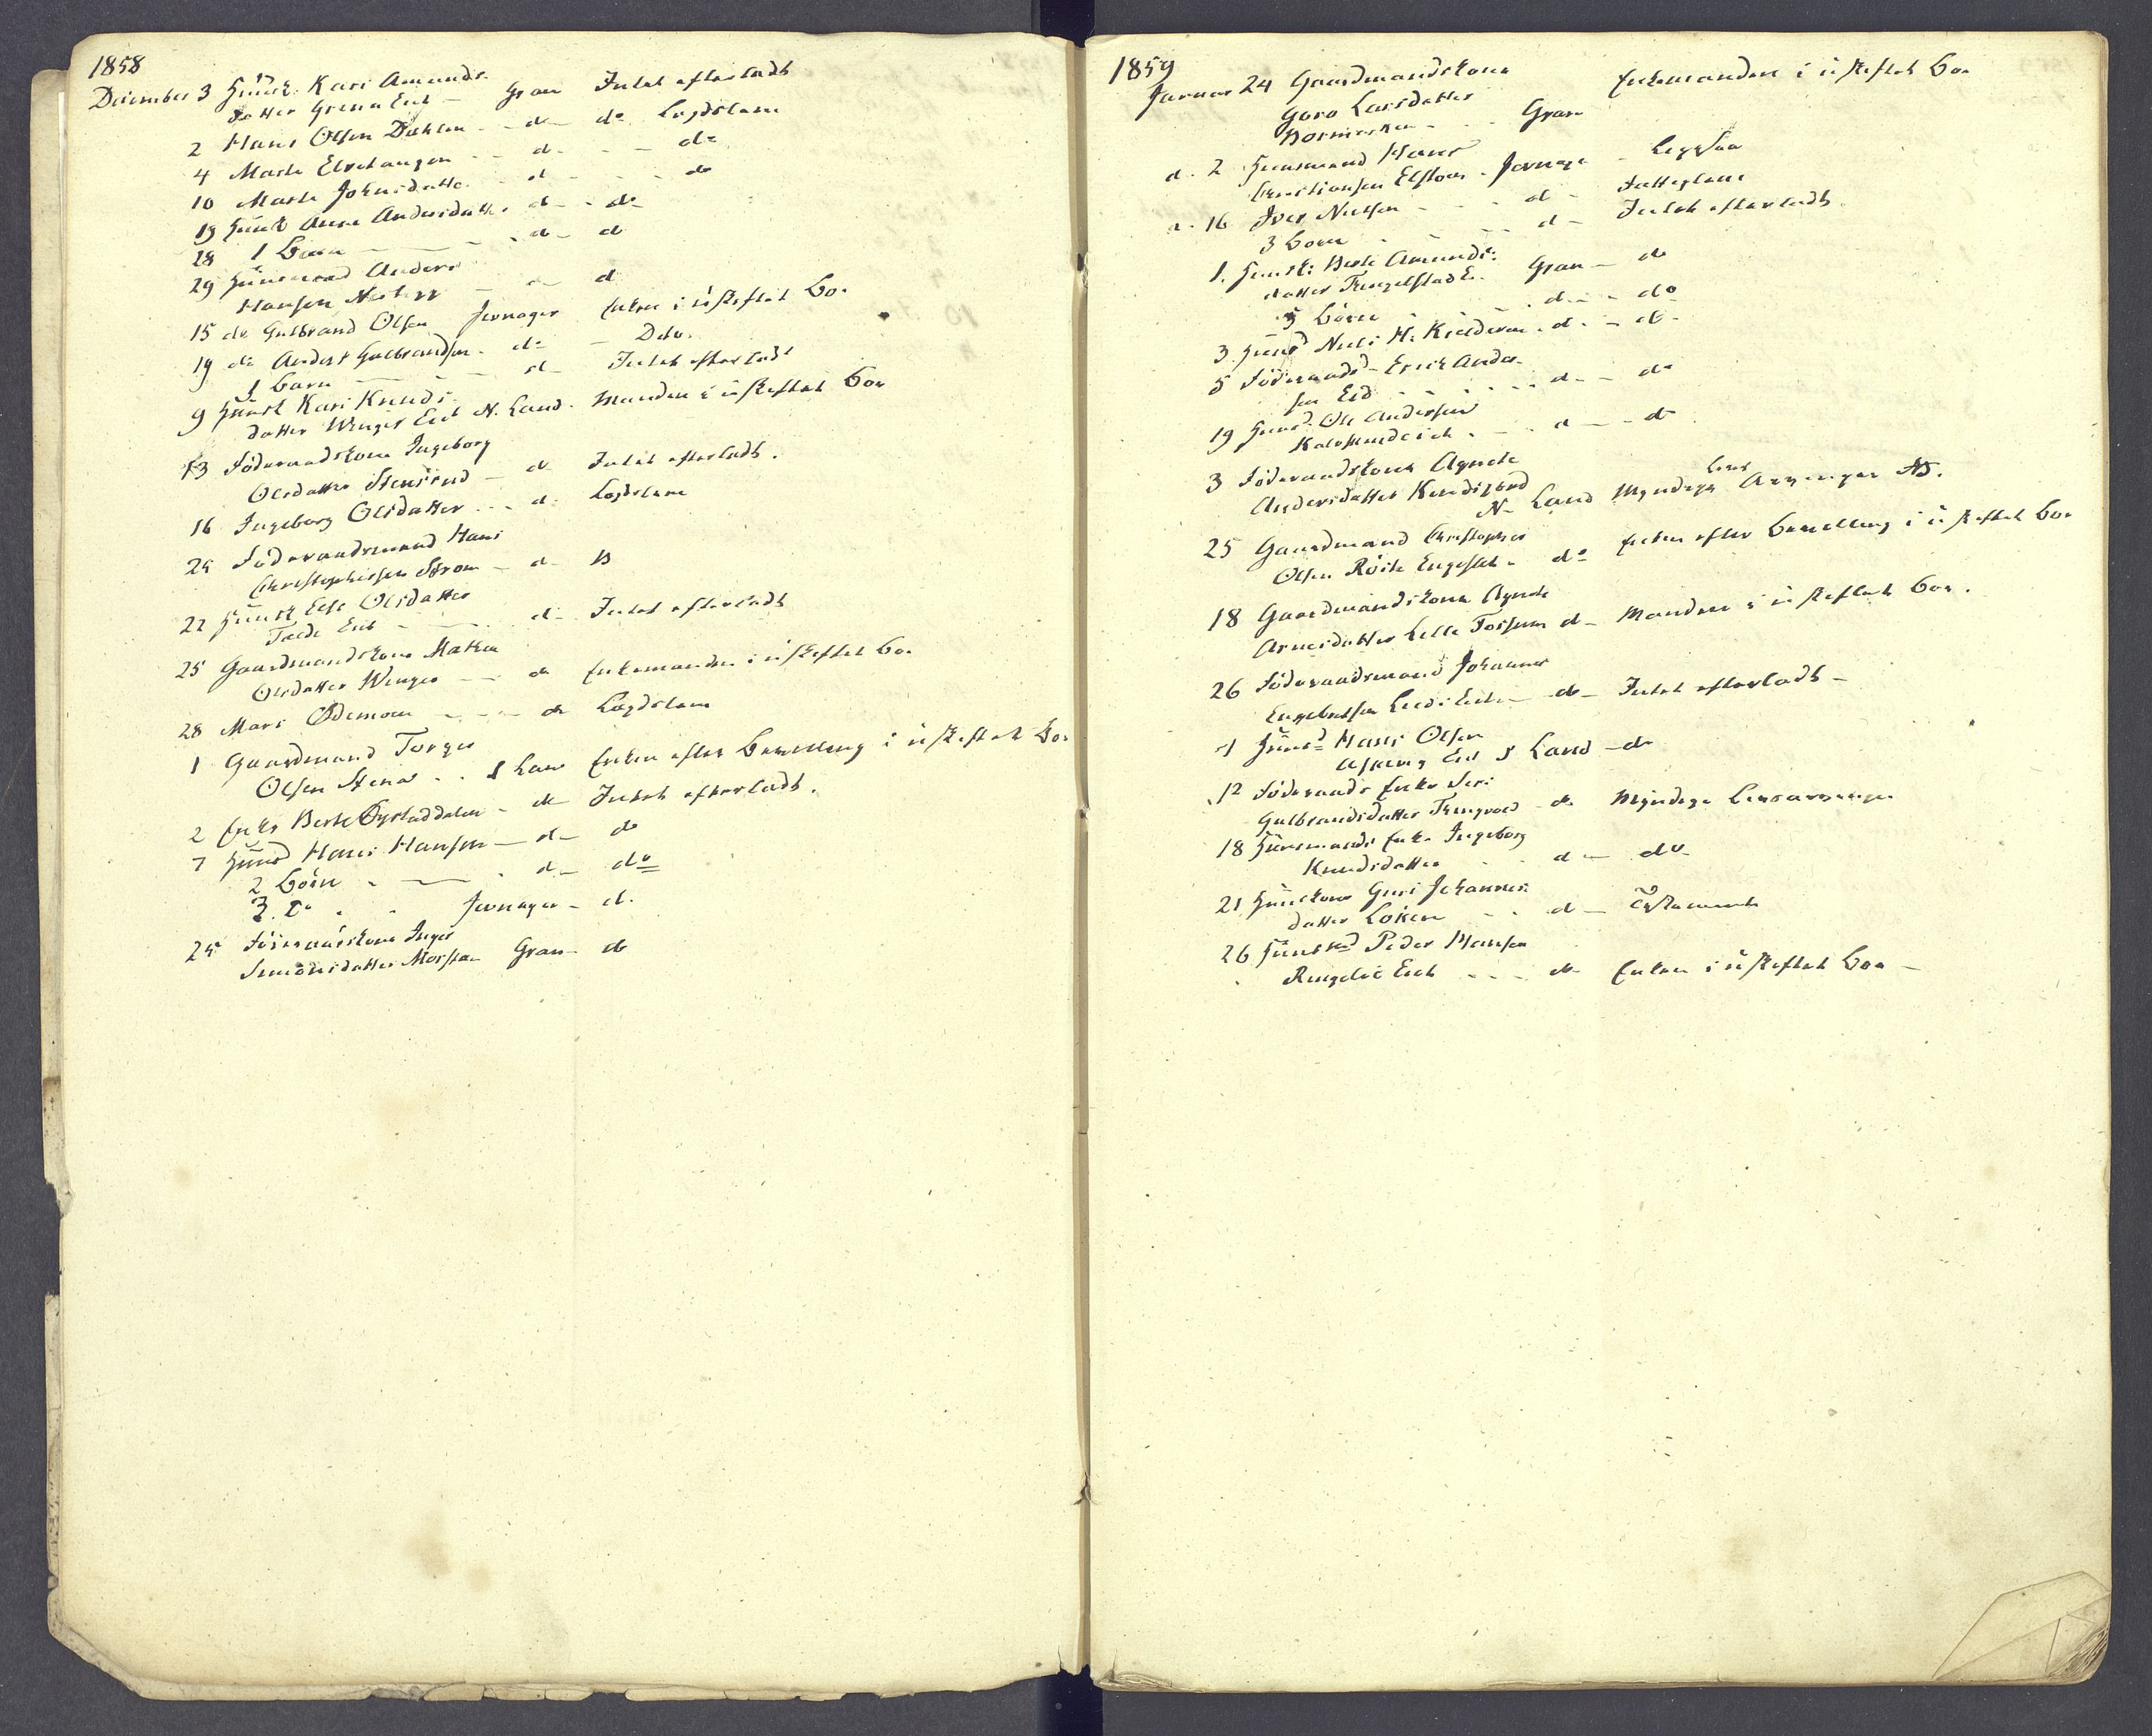 1858
December 3 Huusk. Kari Amunds-
datter Grina Eie - Gran Intet efterladt
2 Hans Olsen Dahlen - d - do Lægdslem
4 Marte - d - - do
10 Marte Johnsdatter - d - - do
19 Huusk Anne Andersdatter d - do
28 1 Barn - d - d
29 Huusmand Anders
Hansen - d
15 do Gulbrand Olsen Jevnager Enken i uskiftet Bo
19 do Anders Gulbrandsen - do - Dito
1 Barn - d - Intet efterladt
9 Huusk Kari Knuds-
datter Winger Eie N. Land - Manden i uskiftet Boe
13 Föderaadskone Ingeborg
Olsdatter Stensrud - d Intet efterladt.
16 Ingeborg Olsdatter - d Lægdslem
24 Föderaadsmand Hans
Christophersen Strøm - d - B
22 Huusk Else Olsdatter
Eie - d - Intet efterladt
25 Gaardmandskone Mathea
Olsdatter Winger - do Enkemanden i uskiftet Boe
28 Mari Ødemoen - do Lægdslem
1 Gaardmand Torger
Olsen Stenar - S Land Enken efter Bevilling i uskiftet Bo
2 Enke Berthe - do Intet efterladt.
7 Huusmd Hans Hansen - d - do
2 Börn - d - do
3 do - Jevnager - d.
24 Föderaadskone Inger
Simonsdatter Morstan Gran - do
1859
Januar 24 Gaardmandskone Enkemanden i uskiftet Boe
Goro Larsdatter
Gran
d. 2 Huusmand Hans
Christiansen - Jevnager -
d. 16 Iver Nielsen - d - Fattiglem
3 Born - d - Intet efterladt.
1. Huusk: Berthe Amunds:
datter Tingelstad E. Gran - do
3 Börn - d - do
3 Huusmd Niels H. - d - do
5 Föderaadsmd - Erick Ander-
sen Eid - d - do
19 Huusmd Ole Andersen
- d - do
3 Föderaadskone Agnete
Andersdatter
N. Land Myndige Livs Arvinger AB.
25 Gaardmand Christopher
Olsen Röite - do Enken efter Bevilling i uskiftet Bo
18 Gaardmandskone Agnete
Arnesdatter Lille Fossum d - Manden i uskiftet Boe.
26 Föderaadsmand Johannes
Engebretsen - do - Intet efterladt -
4 Huusmd Hans Olsen
Eie S Land - do
12 Föderaads Enke Siri
Gulbrandsdatter - do Myndige Livsarvinger
18 Huusmands Enke Ingeborg
Knudsdatter - d - do
21 Huuskone Guri Johannes-
datter Löken - d - Testamente
26 Huusmd Peder Hansen
Ringelie Eie - do Enken i uskiftet Boe -